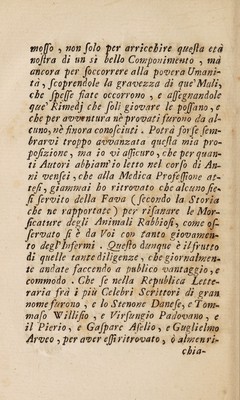 mosso, non solo per arricchire questa età
nostra di un sì bello Componimento, mà
ancora per soccorrere alla povera Umani-
tà, scoprendole la gravezza di que' Mali,
che spesse fiate occorrono, e assegnandole
que' Rimedj che soli giovare le possano, e
che per avventura nè provati furono da al-
cuno, nè finora conosciuti. Potrà forse sem-
brarvi troppo avvanzata questa mia pro-
posizione, ma io vi assicuro, che per quan-
ti Autori abbiam'io letto nel corso di An-
ni vensei, che alla Medica Professione at-
tesi, giammai ho ritrovato che alcuno sie-
si servito della Fava (secondo la Storia
che ne rapportate) per risanare le Mor-
sicature degli Animali Rabbiosi, come os-
servato si è da Voi con tanto giovamen-
to degl'Infermi. Questo dunque è il frutto
di quelle tante diligenze, che giornalmen-
te andate facendo a publico vantaggio, e
commodo. Che se nella Republica Lette-
raria frà i più Celebri Scrittori di gran
nome furono, e lo Stenone Danese, e Tom-
maso Willisio, e Virsungio Padovano, e
il Pierio, e Gaspare Aselio, e Guglielmo
Arveo, per aver essi ritrovato, ò almen ri-
chia-